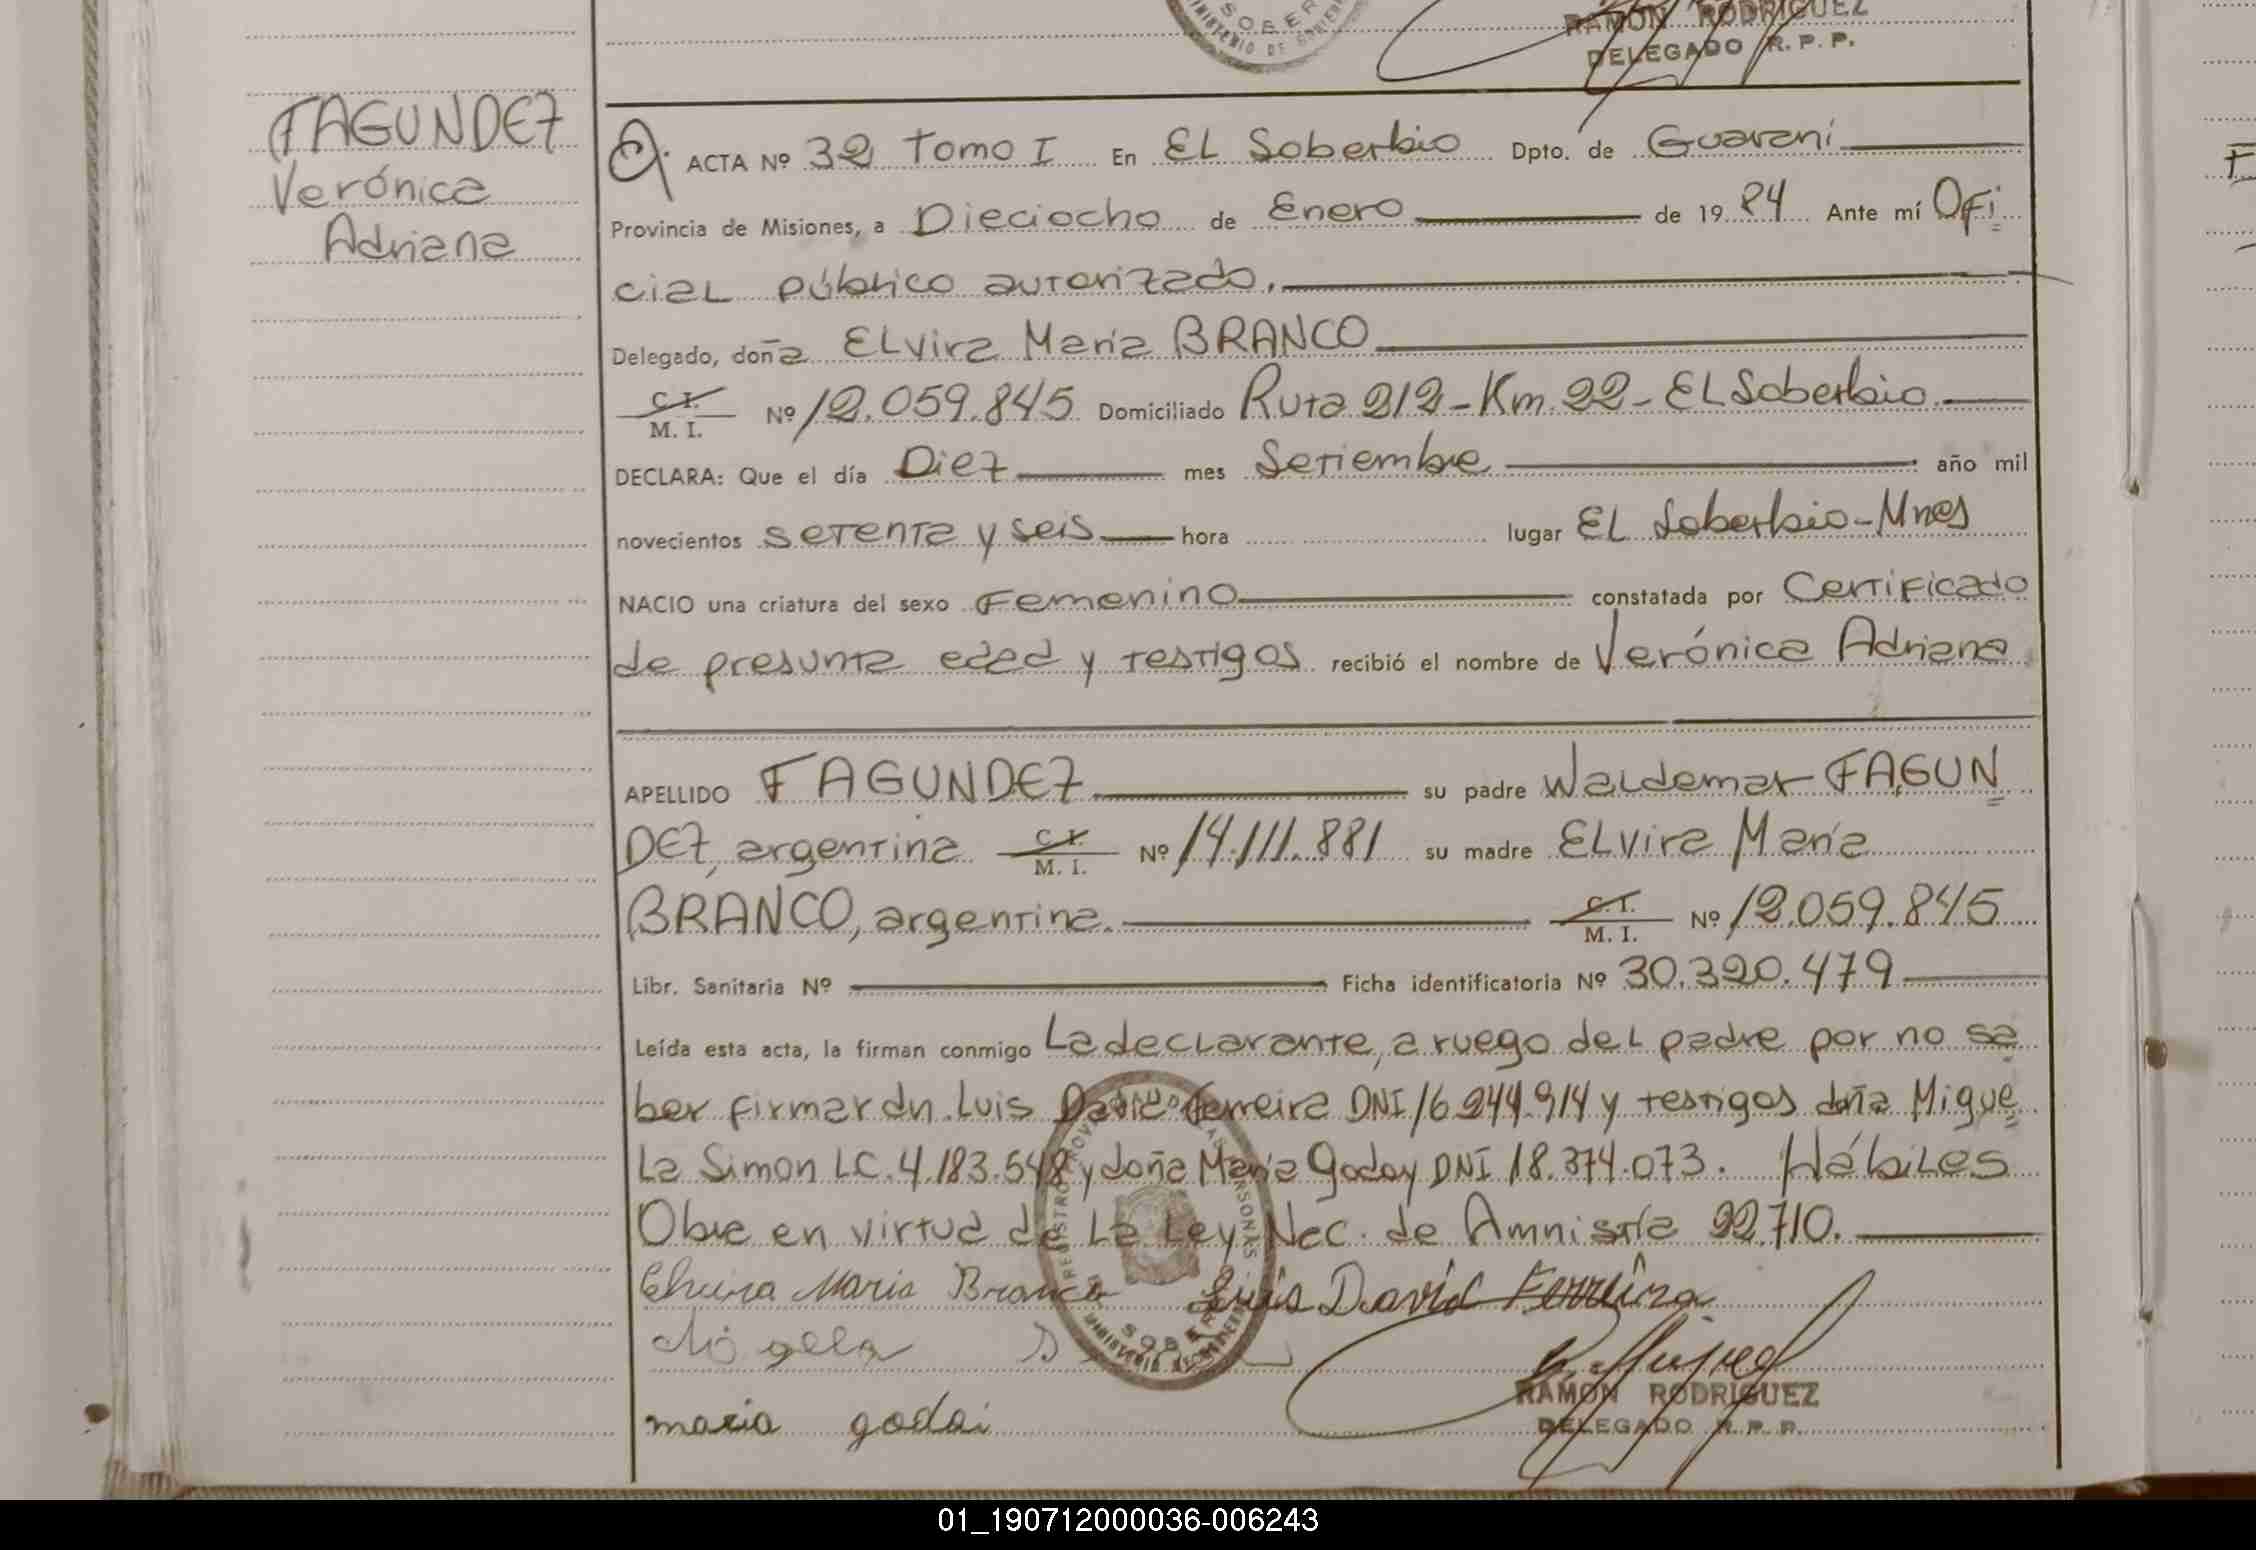 SOBER
MINISTERIO DE GOBIERN
RAMON RODRIGUEZ
DELEGADO R. P. P.
FAGUNDEZ
Verónica
Adriana
ACTA Nº 32 Tomo I En EL Soberbio Dpto. de Guaraní
Provincia de Misiones, a Dieciocho de Enero de 19 84 Ante mí Ofi
cial público autorizado.
Delegado, doña Elvira María BRANCO
C. I. M. I. Nº 12.059.845 Domiciliado Ruta 212 - Km. 22 - El Soberbio.
DECLARA: Que el día Diez mes Setiembre año mil
novecientos setenta y seis hora lugar El Soberbio - Mnes
NACIO una criatura del sexo Femenino constatada por Certificado
de presunta edad y testigos recibió el nombre de Verónica Adriana
APELLIDO FAGUNDEZ su padre Waldemar FAGUN
DEZ, argentina C. I. M. I. Nº 14.111.881 su madre Elvira María
BRANCO, argentina. C. I. M. I. Nº 12.059.845
Libr. Sanitaria Nº Ficha identificatoria Nº 30.320.479
Leída esta acta, la firman conmigo La declarante, a ruego del padre por no sa
ber firmar dn. Luis David Ferreira DNI 16.244.914 y testigos doña Migue
la Simon LC. 4.183.548 y doña María Godoy DNI 18.374.073. Hábiles
Obre en virtud de la Ley Nac. de Amnistía 22.710.
Elvira Maria Branco Luis David Ferreira
SOBER
RAMON RODRIGUEZ
DELEGADO R. P. P.
maria godai
01_190712000036-006243